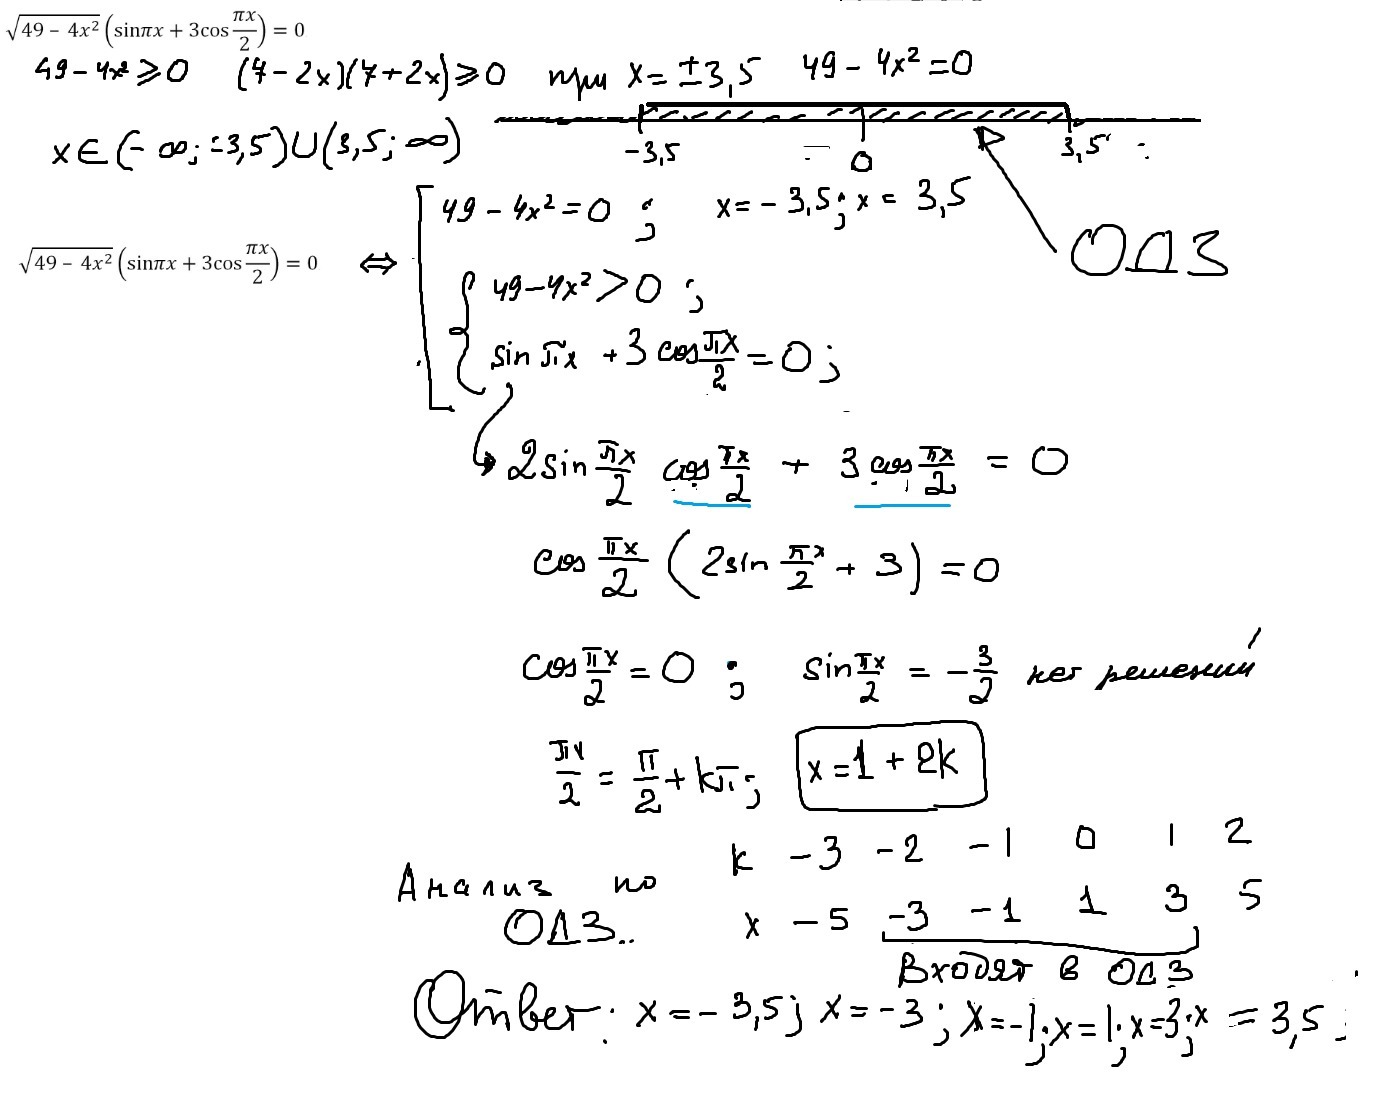 √49 – 4x² (sinπx + 3cos πx/2) = 0
49 - 4x² ⩾ 0 (7 - 2x)(7 + 2x) ⩾ 0 при x = ±3,5 49 - 4x² = 0
x ∈ (-∞; -3,5) ∪ (3,5; ∞)
-3,5 0 3,5
49 - 4x² = 0 ; x = -3,5; x = 3,5
ОДЗ
√49 – 4x² (sinπx + 3cos πx/2) = 0 ⇔
49 - 4x² > 0 ;
sin πx + 3 cos πx/2 = 0 ;
2 sin πx/2 cos πx/2 + 3 cos πx/2 = 0
cos πx/2 (2 sin πx/2 + 3) = 0
cos πx/2 = 0 ; sin πx/2 = -3/2 нет решений
πx/2 = π/2 + kπ; x = 1 + 2k
k -3 -2 -1 0 1 2
Анализ по
ОДЗ.. x -5 -3 -1 1 3 5
Входят в ОДЗ
Ответ: x = -3,5; x = -3; x = -1; x = 1; x = 3; x = 3,5